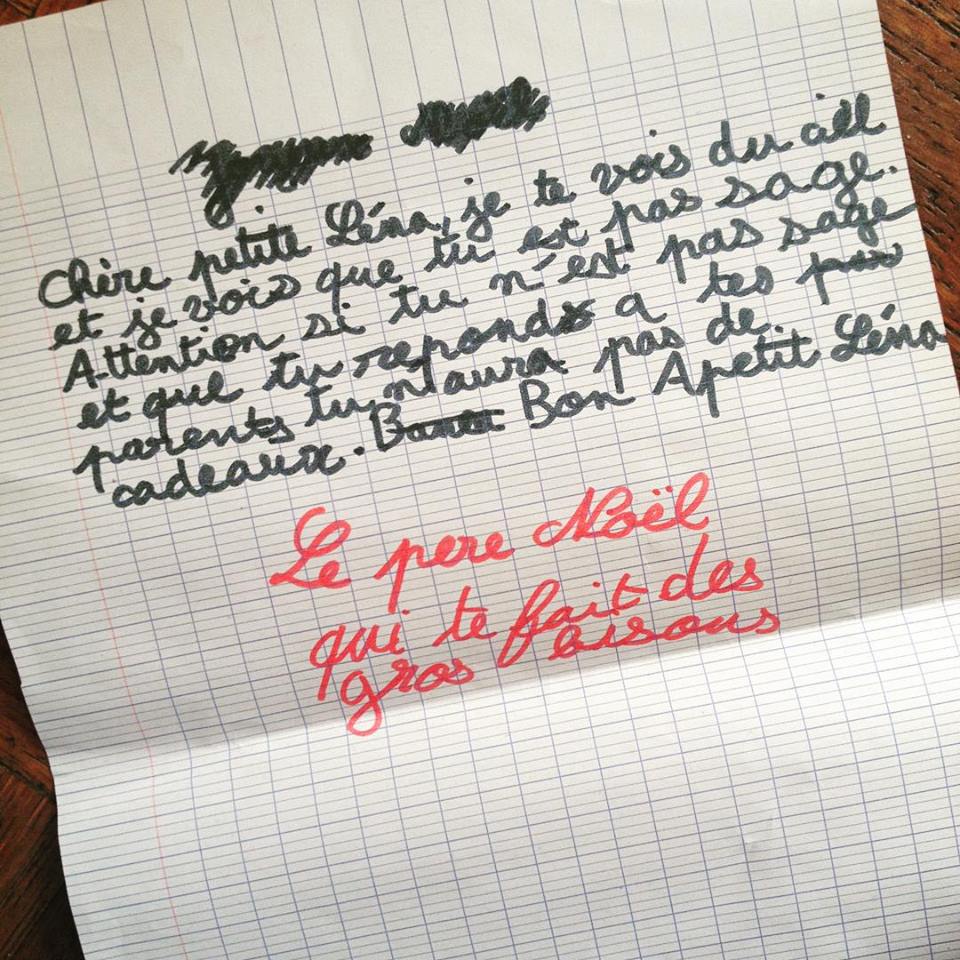 Chère petite Léna, je te vois du ciell
et je vois que tu est pas sage.
Attention si tu n'est pas sage
et que tu repond a tes
parents tu n'aura pas de
cadeaux. Bon Apetit Léna
Le pere Noël
qui te fait des
gros bisous